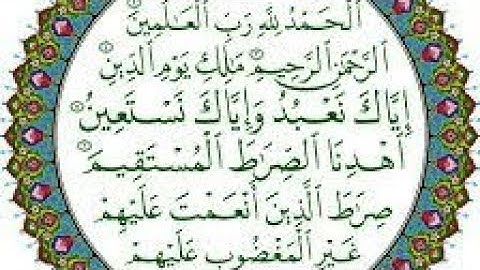 ٱلْحَمْدُ لِلَّهِ رَبِّ ٱلْعَٰلَمِينَ
ٱلرَّحْمَٰنِ ٱلرَّحِيمِ مَٰلِكِ يَوْمِ ٱلدِّينِ
إِيَّاكَ نَعْبُدُ وَإِيَّاكَ نَسْتَعِينُ
ٱهْدِنَا ٱلصِّرَٰطَ ٱلْمُسْتَقِيمَ
صِرَٰطَ ٱلَّذِينَ أَنْعَمْتَ عَلَيْهِمْ
غَيْرِ ٱلْمَغْضُوبِ عَلَيْهِمْ